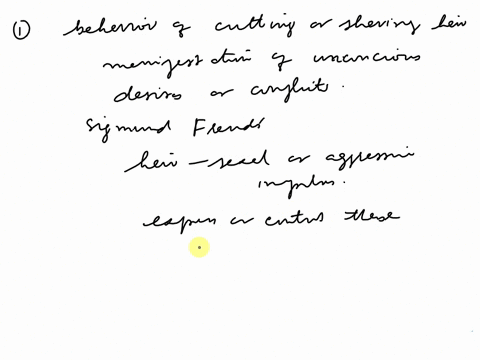 ① behavior of cutting or shaving hair
manifestation of unconcious
desires or conflicts.
Sigmund Freud
hair – sexual or aggressive
impulses.
express or control these